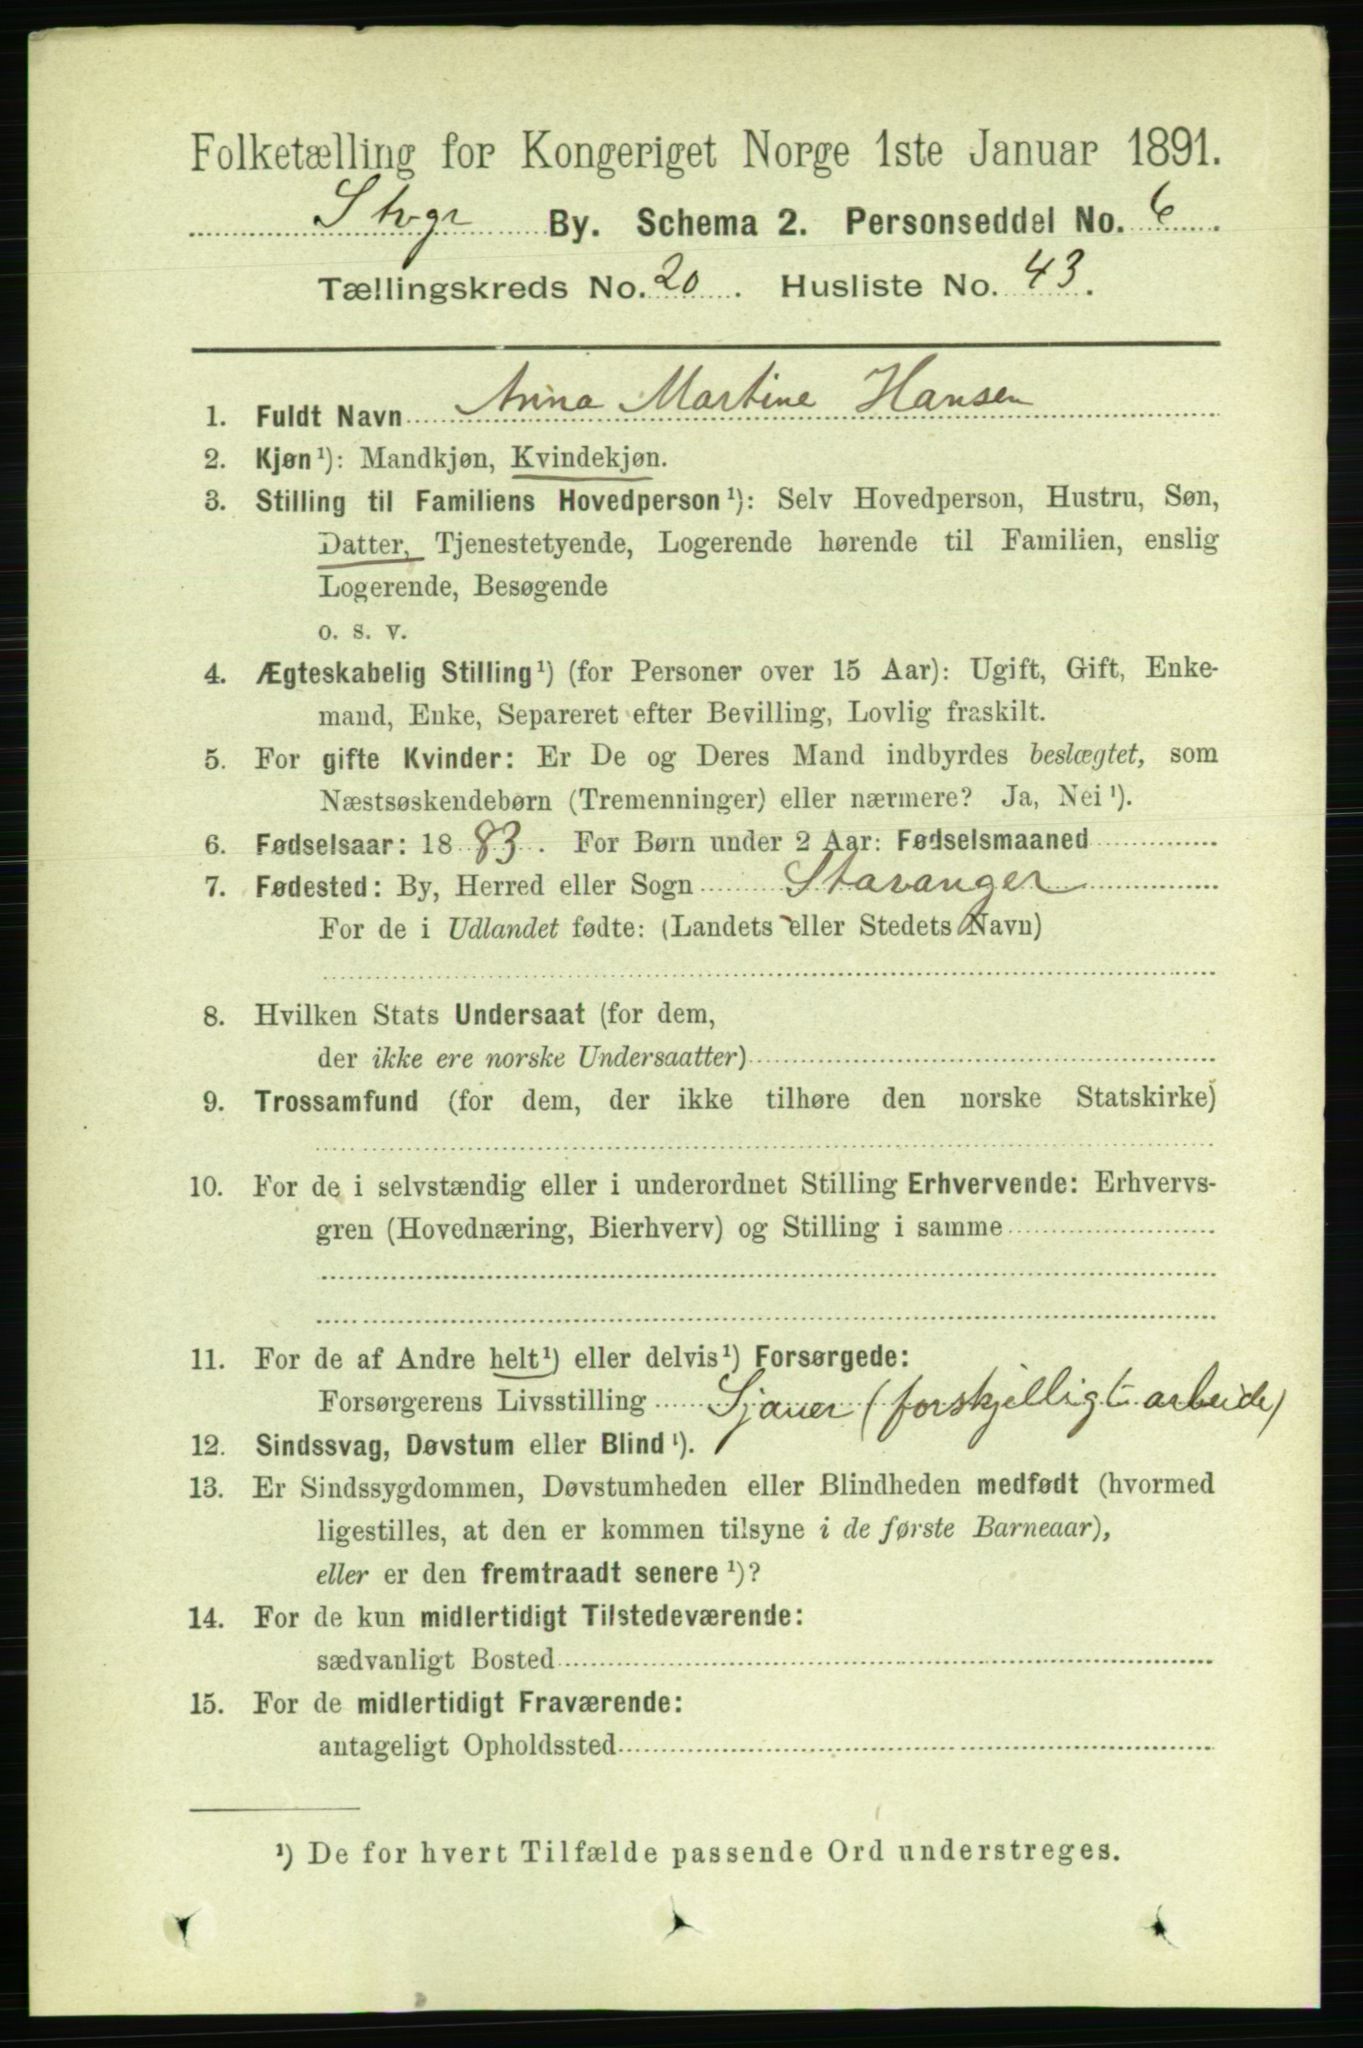 Folketælling for Kongeriget Norge 1ste Januar 1891.
Stvgr By. Schema 2. Personseddel No. 6.
Tællingskreds No. 20. Husliste No. 43.
1. Fuldt Navn Anna Martine Hansen
2. Kjøn¹): Mandkjøn, Kvindekjøn.
3. Stilling til Familiens Hovedperson¹): Selv Hovedperson, Hustru, Søn,
Datter, Tjenestetyende, Logerende hørende til Familien, enslig
Logerende, Besøgende
o. s. v.
4. Ægteskabelig Stilling¹) (for Personer over 15 Aar): Ugift, Gift, Enke-
mand, Enke, Separeret efter Bevilling, Lovlig fraskilt.
5. For gifte Kvinder: Er De og Deres Mand indbyrdes beslægtet, som
Næstsøskendebørn (Tremenninger) eller nærmere? Ja, Nei¹).
6. Fødselsaar: 1883. For Børn under 2 Aar: Fødselsmaaned
7. Fødested: By, Herred eller Sogn Stavanger
For de i Udlandet fødte: (Landets eller Stedets Navn)
8. Hvilken Stats Undersaat (for dem,
der ikke ere norske Undersaatter)
9. Trossamfund (for dem, der ikke tilhøre den norske Statskirke)
10. For de i selvstændig eller i underordnet Stilling Erhvervende: Erhvervs-
gren (Hovednæring, Bierhverv) og Stilling i samme
11. For de af Andre helt¹) eller delvis¹) Forsørgede:
Forsørgerens Livsstilling Sjauer (forskjelligt arbeide)
12. Sindssvag, Døvstum eller Blind¹).
13. Er Sindssygdommen, Døvstumheden eller Blindheden medfødt (hvormed
ligestilles, at den er kommen tilsyne i de første Barneaar),
eller er den fremtraadt senere¹)?
14. For de kun midlertidigt Tilstedeværende:
sædvanligt Bosted
15. For de midlertidigt Fraværende:
antageligt Opholdssted
¹) De for hvert Tilfælde passende Ord understreges.